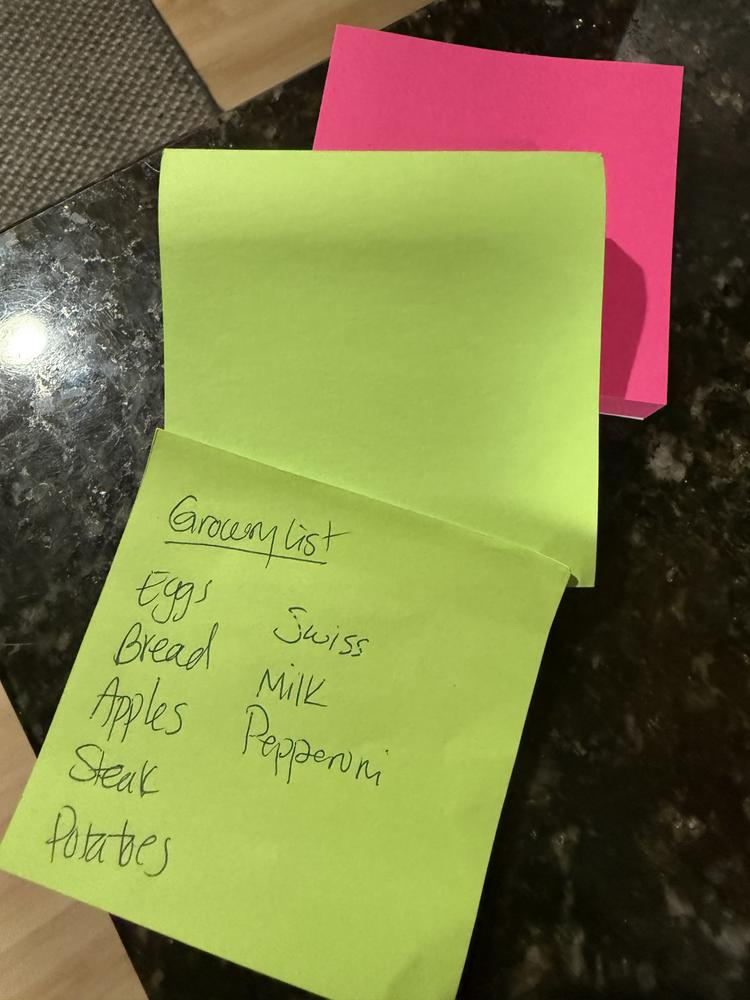 Grocery list
Eggs
Bread
Apples
Steak
Potatoes
Swiss
Milk
Pepperoni